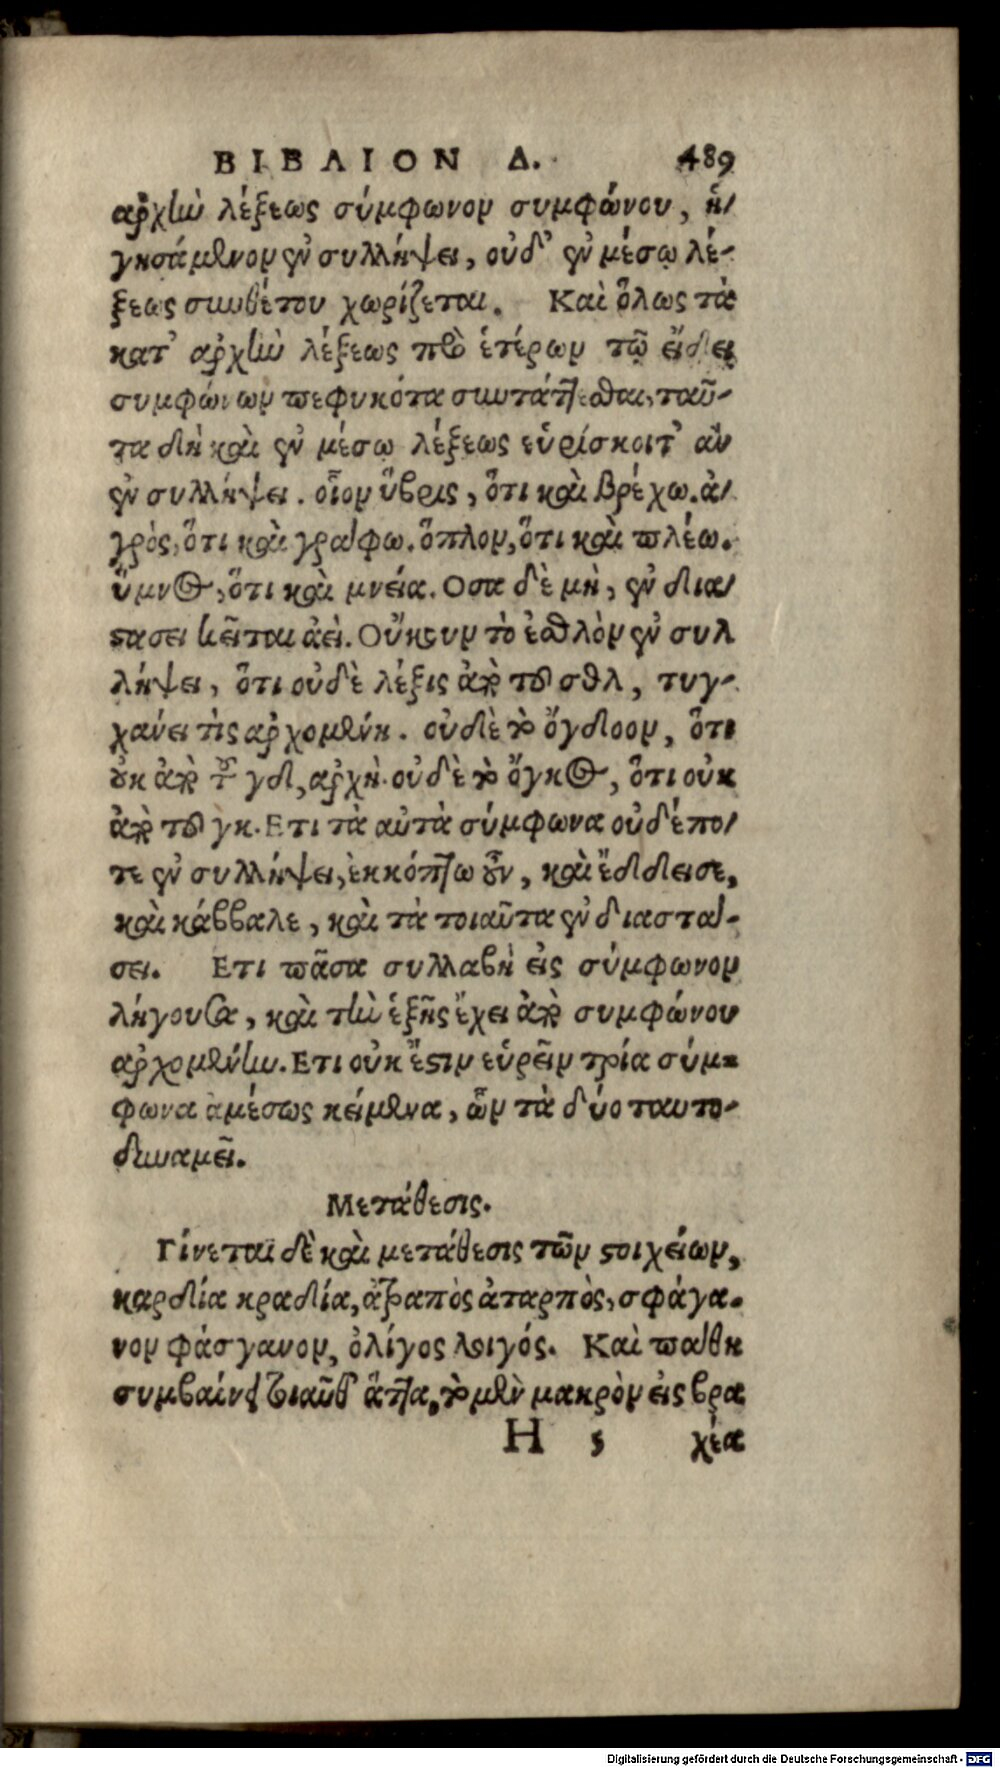 ΒΙΒΛΙΟΝ Δ. 489
ἀρχὴν λέξεως σύμφωνον συμφώνου, ἡ/
γησάμενον ἐν συλλήψει, οὐδ' ἐν μέσῳ λέ-
ξεως συνθέτου χωρίζεται. Καὶ ὅλως τὰ
κατ' ἀρχὴν λέξεως πρὸ ἑτέρων τῷ εἴδει
συμφώνων πεφυκότα συντάττεσθαι, ταῦ-
τα δὴ καὶ ἐν μέσῳ λέξεως εὑρίσκοιτ' ἂν
ἐν συλλήψει. οἷον ὕβρις, ὅτι καὶ βρέχω. ἀ/
γρὸς, ὅτι καὶ γράφω. ὅπλον, ὅτι καὶ πλέω.
ὕμνος, ὅτι καὶ μνεία. Οσα δὲ μὴ, ἐν δια/
στάσει κεῖται ἀεὶ. Οὔκουν τὸ ἐσθλὸν ἐν συλ
λήψει, ὅτι οὐδὲ λέξις ἀπὸ τοῦ σθλ, τυγ-
χάνει τὶς ἀρχομένη. οὐδὲ τὸ ὄγδοον, ὅτι
οὐκ ἀπὸ τοῦ γδ, ἀρχὴ. οὐδὲ τὸ ὄγκος, ὅτι οὐκ
ἀπὸ τοῦ γκ. Ετι τὰ αὐτὰ σύμφωνα οὐδέπο/
τε ἐν συλλήψει, ἐκκόπτω οὖν, καὶ ἔδδεισε,
καὶ κάββαλε, καὶ τὰ τοιαῦτα ἐν διαστά-
σει. Ετι πᾶσα συλλαβὴ εἰς σύμφωνον
λήγουσα, καὶ τὴν ἑξῆς ἔχει ἀπὸ συμφώνου
ἀρχομένην. Ετι οὐκ ἔστιν εὑρεῖν τρία σύμ-
φωνα ἀμέσως κείμενα, ὧν τὰ δύο ταυτο-
δυναμεῖ.
Μετάθεσις.
Γίνεται δὲ καὶ μετάθεσις τῶν στοιχείων,
καρδία κραδία, ἀτραπὸς ἀταρπὸς, σφάγα-
νον φάσγανον, ὀλίγος λοιγός. Καὶ πάθη
συμβαίνει τοιαῦθ' ἅττα, τὸ μὲν μακρὸν εἰς βρα
Η 5 χέα
Digitalisierung gefördert durch die Deutsche Forschungsgemeinschaft - DFG